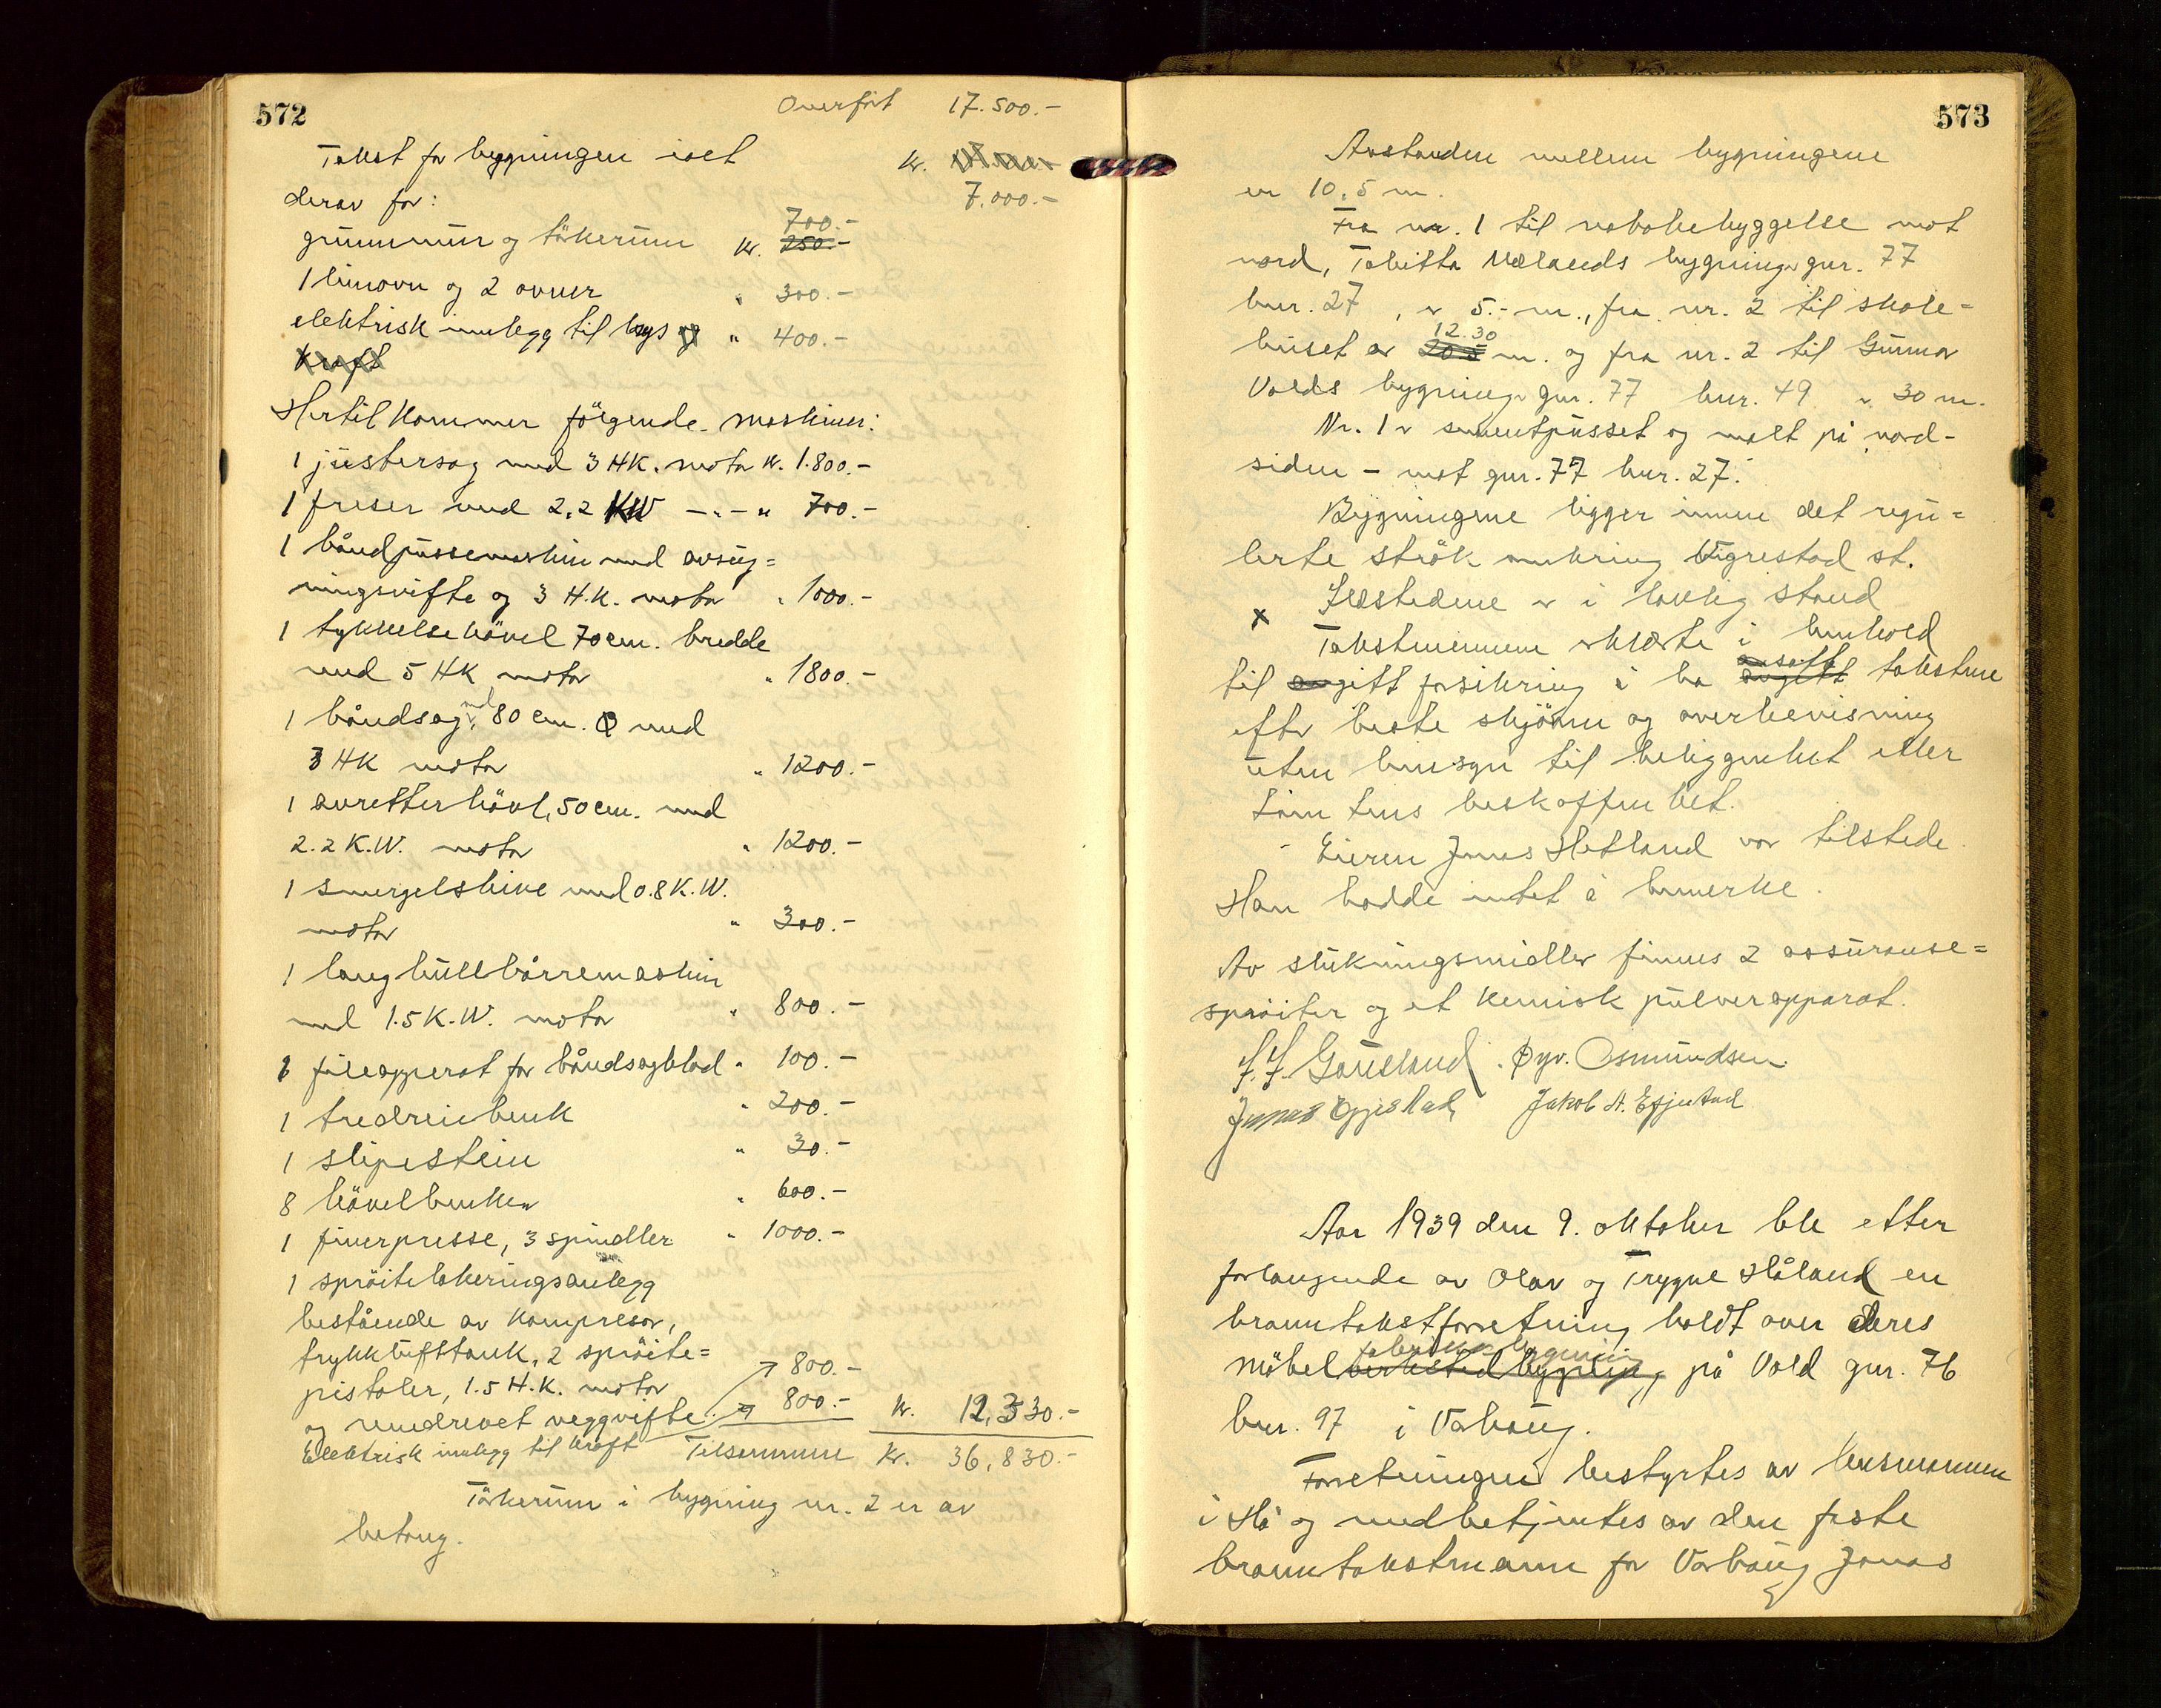 572
Overført 17.500.-
Takst for bygningen ialt kr.
7.000.-
derav for:
700.-
grunnmur og törkerum kr. 250.-
1 limovn og 2 ovner " 300.-
elektrisk innlegg til lys og " 400.-
kraft
Hertil kommer fölgende maskiner:
1 justersag med 3 HK. motor kr. 1.800.-
1 freser med 2,2 KW -"- " 700.-
1 båndpussemaskin med avsug=
ningsvifte og 3 H.K. motor " 1000.-
1 tykkelsehövel 70 cm. bredde
med 5 HK motor " 1800.-
1 båndsag, 80 cm. Φ med
3 HK motor " 1200.-
1 avretterhövl, 50 cm. med
2.2 K.W. motor " 1200.-
1 smergelskive med 0.8 K.W.
motor " 300.-
1 langhullborremaskin
med 1.5 K.W. motor " 800.-
1 fileapparat for båndsagblad " 100.-
1 tredreiebenk " 200.-
1 slipestein " 30.-
8 hövelbenker " 600.-
1 finerpresse, 3 spindler " 1000.-
1 spröitelakeringsanlegg
bestående av kompresor,
trykklufttank, 2 spröite=
pistoler, 1.5 H.K. motor 800.-
og remdrevet veggvifte 800.- kr. 12,330.-
Elektrisk innlegg til kraft Tilsammen kr. 36,830.-
Törkerum i bygning nr. 2 er av
betong.
573
Avstanden mellem bygningene
er 10,5 m.
Fra nr. 1 til nabobebyggelse mot
nord, Tabitta Mælands bygning gnr. 77
bnr. 27, er 5.- m., fra nr. 2 til skole=
12.30
huset er m. og fra nr. 2 til Gunnar
Volds bygning gnr. 77 bnr. 49 er 30 m.
Nr. 1 er sementpusset og malt på nord-
siden - mot gnr. 77 bnr. 27.
Bygningene ligger innen det regu=
lerte strök omkring Vigrestad st.
Ildstedene er i lovlig stand
x Takstmennene erklærte i henhold
ansatt
til avgitt forsikring å ha avgitt takstene
efter beste skjönn og overbevisning
uten hensyn til beliggenhet eller
tomtens beskaffenhet.
Eieren Jonas Hetland var tilstede.
Han hadde intet å bemerke.
Av slukningsmidler finnes 2 assuranse=
spröiter og et kemisk pulverapparat.
Øyv. Osmundsen.
Jonas Jakob A.
Aar 1939 den 9. oktober ble etter
forlangende av Olav og Trygve Håland en
branntakstforretning holdt over deres
fabrikkbygning
möbelverksted bygning på Vold gnr. 76
bnr. 97 i Varhaug.
Forretningen bestyrtes av lensmannen
i Hå og medbetjentes av den faste
branntakstmann for Varhaug Jonas